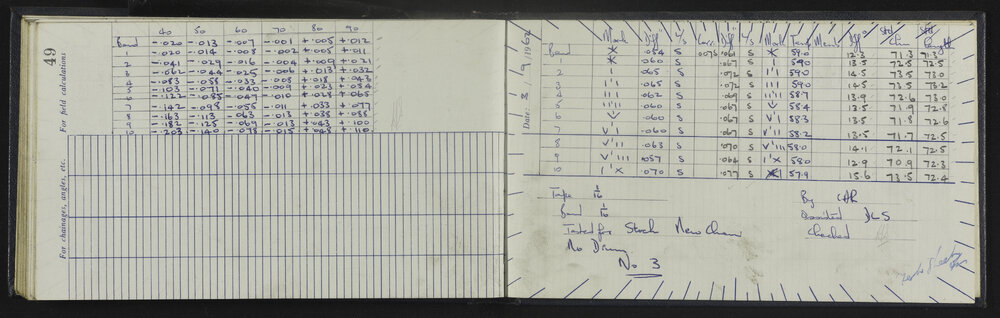 49
For field calculations
For chainages, angles, etc.
40 50 60 70 80 90
Band -.020 -.013 -.007 -.001 +.005 +.012
1 -.020 -.014 -.008 -.002 +.005 +.011
2 -.041 -.029 -.016 -.004 +.009 +.021
3 -.062 -.044 -.025 -.006 +.013 +.032
4 -.083 -.058 -.033 -.008 +.018 +.043
5 -.103 -.071 -.040 -.009 +.023 +.054
6 -.122 -.085 -.047 -.010 +.028 +.065
7 -.142 -.098 -.055 -.011 +.033 +.077
8 -.163 -.113 -.063 -.013 +.038 +.088
9 -.182 -.125 -.069 -.013 +.043 +.100
10 -.203 -.140 -.078 -.015 +.048 +.110
Date 3/9/1962
Mark Diff Corr Diff Mark Temp Diff
Band .054 S .0075 .061 S 59.0 12.3 71.3 71.3
1 .060 S .067 S 1 59.0 13.5 72.5 72.5
2 1 .065 S .072 S 1'1 59.0 14.5 73.5 73.0
3 1'1 .065 S .072 S 111 59.0 14.5 73.5 73.2
4 1'11 .062 S .069 S 11'11 58.7 13.9 72.6 73.0
5 11'11 .060 S .067 S V 58.4 13.5 71.9 72.8
6 V .060 S .067 S V'1 58.3 13.5 71.8 72.6
7 V'1 .060 S .067 S V'11 58.2 13.5 71.7 72.5
8 V'11 .063 S .070 S V'111 58.0 14.1 72.1 72.5
9 V'111 .057 S .064 S 1'X 58.0 12.9 70.9 72.3
10 1'X .070 S .077 S 57.9 15.6 73.5 72.4
Tape 1/16
Band 1/16
Tested for Stock New Chain
No 3
By
DLS
Checked